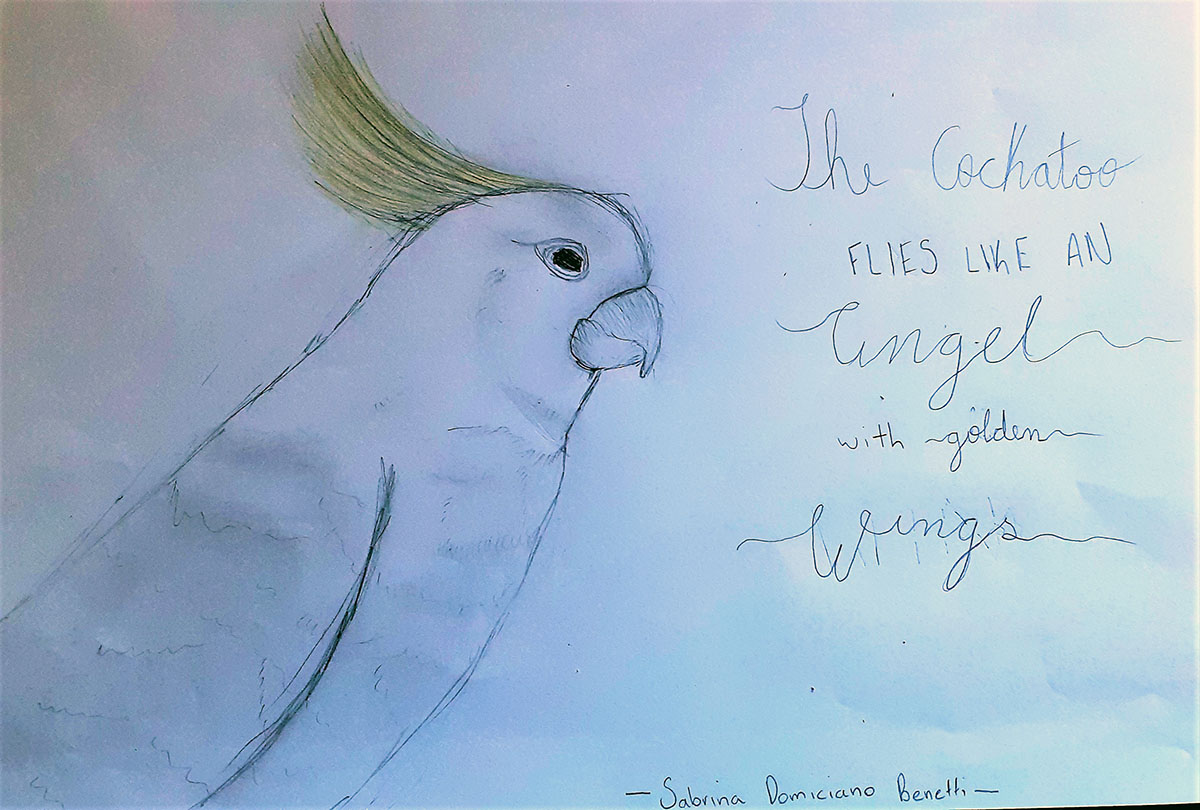 The Cockatoo
FLIES LIKE AN
Angel
with golden
Wings
— Sabrina Domiciano Benetti —